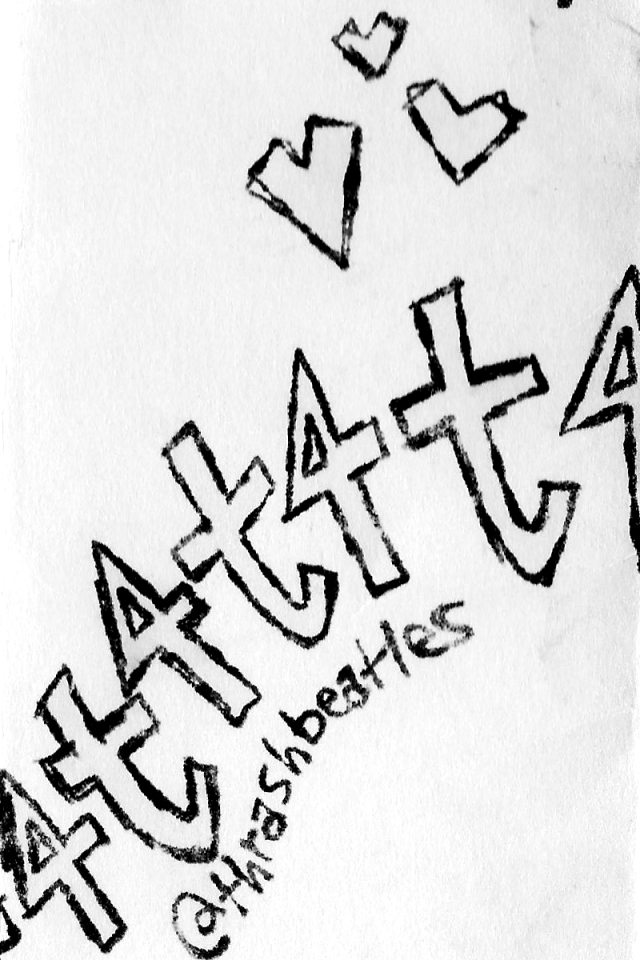 t4t4t4t4
@thrashbeatles